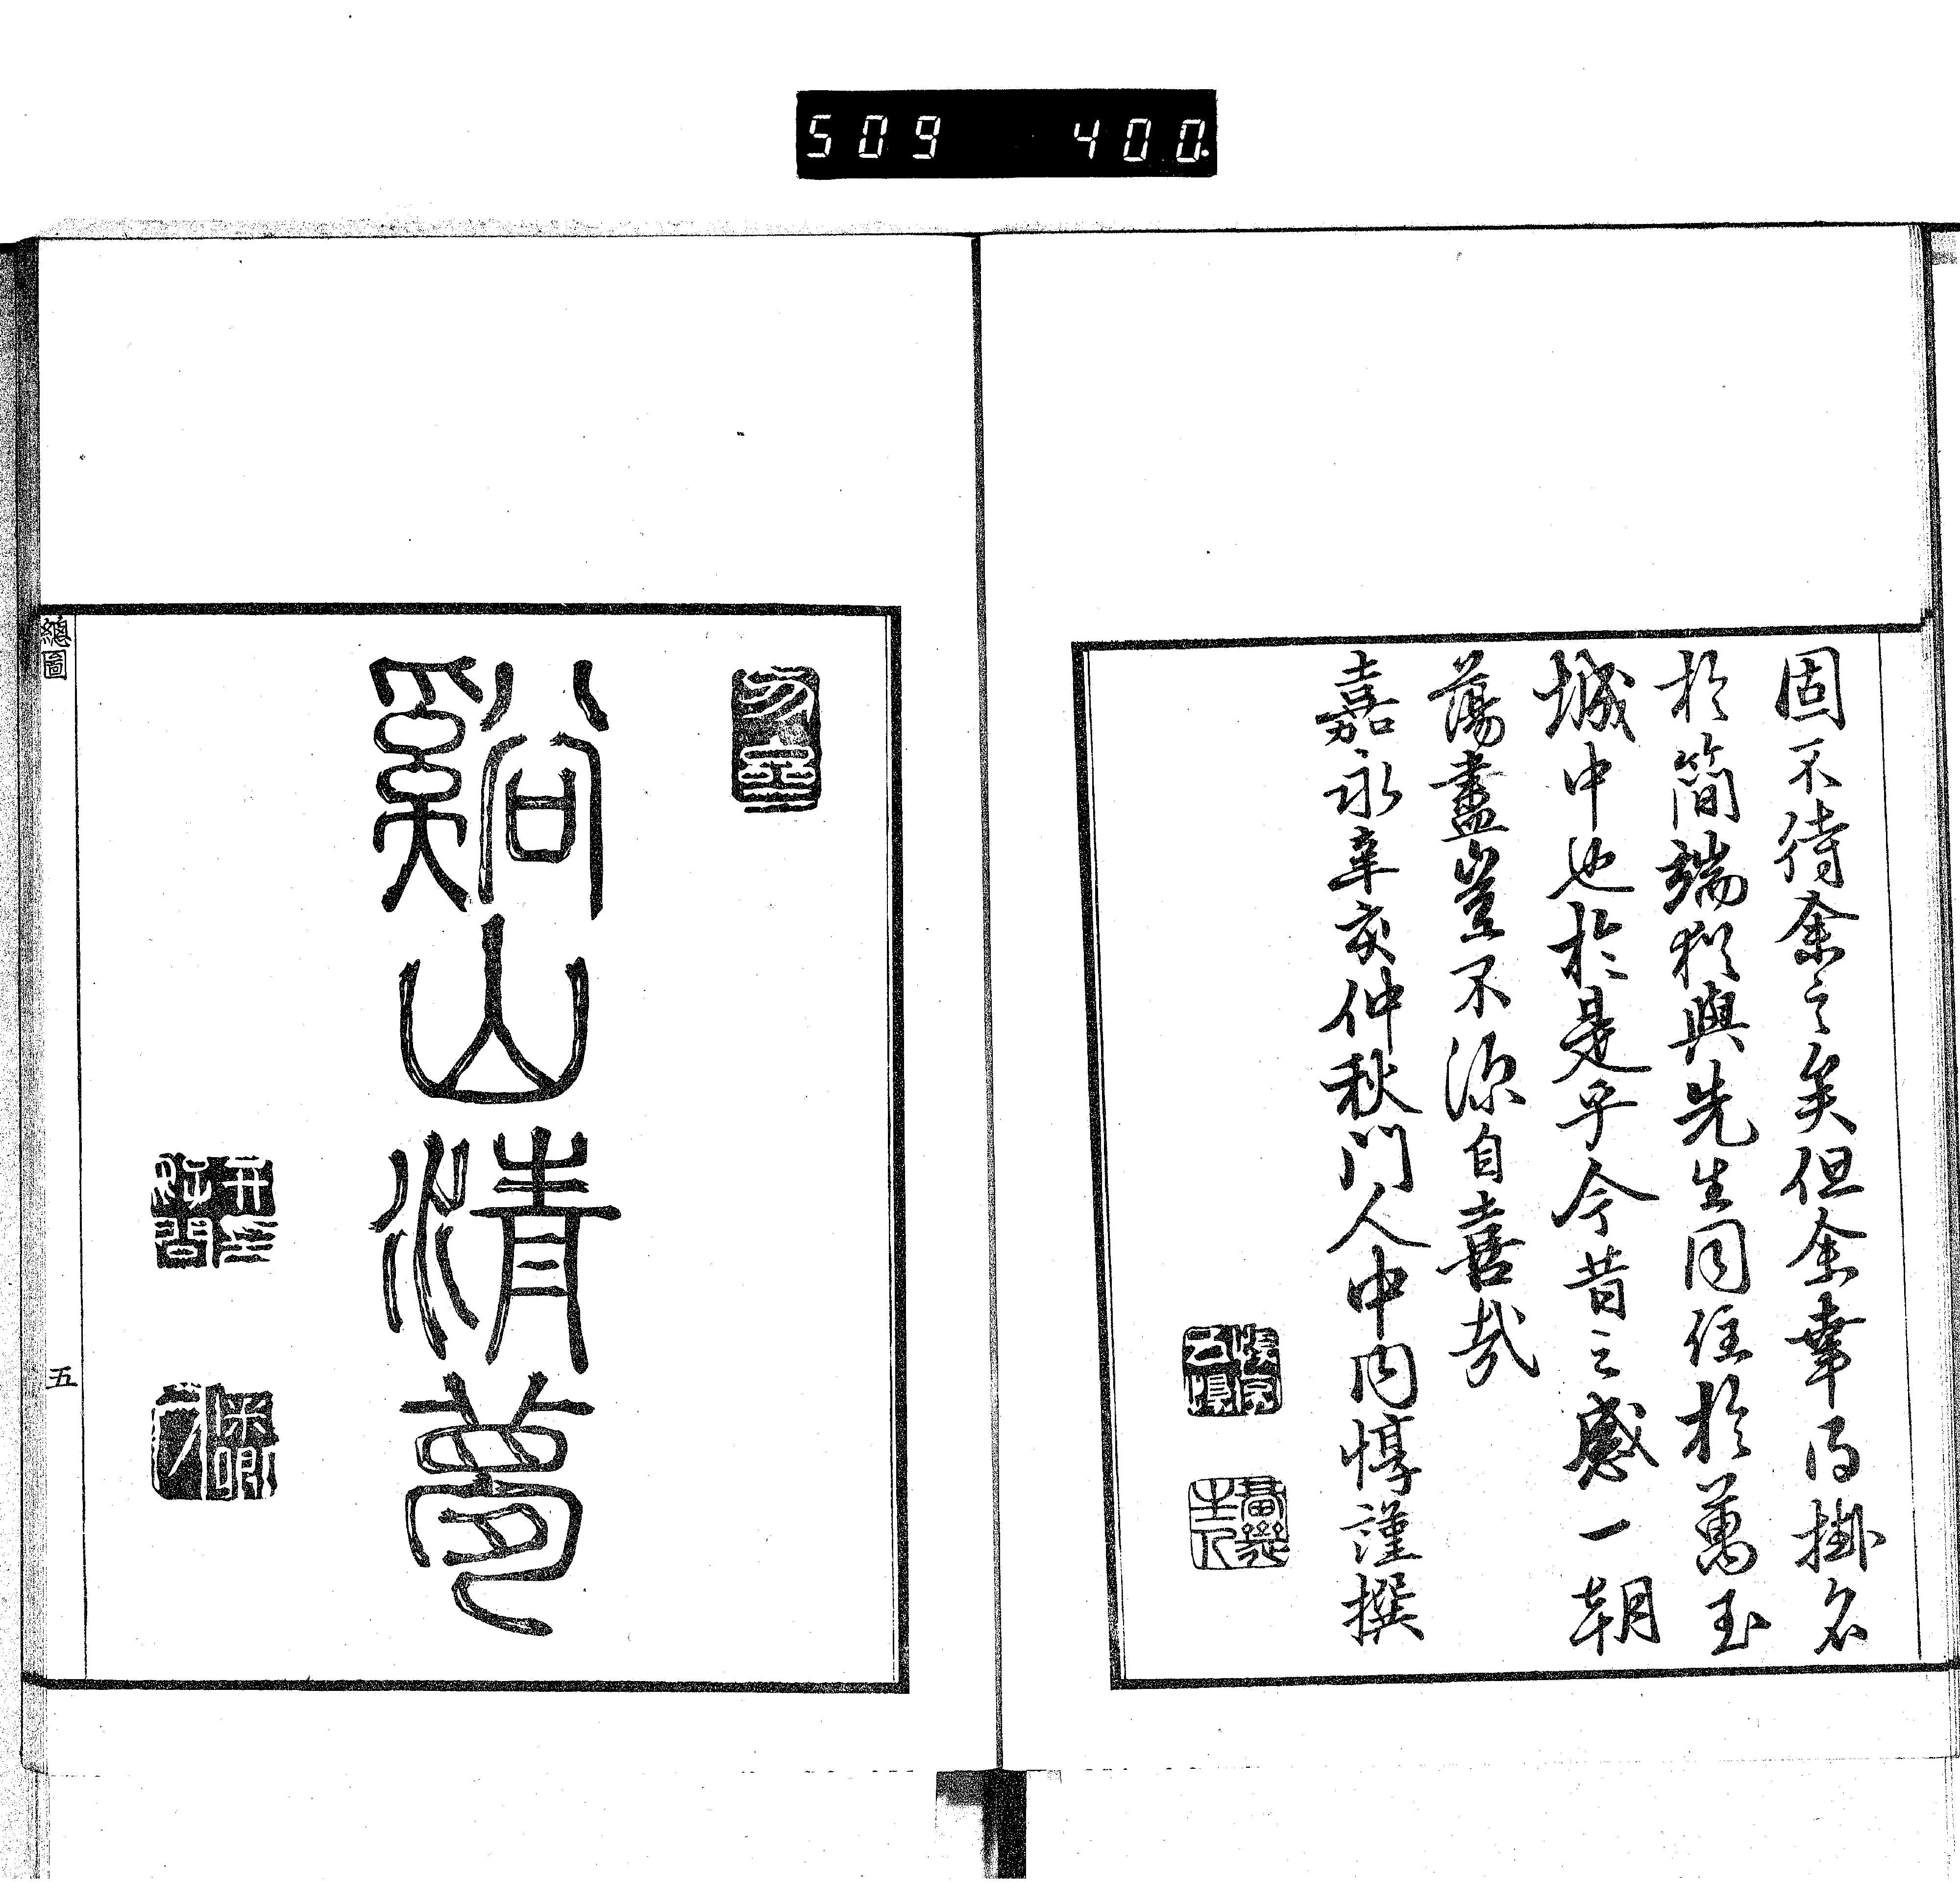 509 400.
固不待余之矣但余幸得掛名
於簡端猶與先生同住於萬玉
城中也於是乎今昔之感一朝
蕩盡豈不深自喜哉
嘉永辛亥仲秋門人中内惇謹撰
谿山清夢
總圖
五